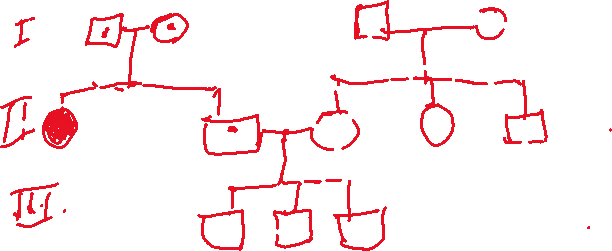 I
II
III.